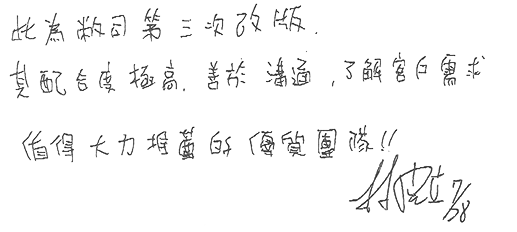 此為敝司第三次改版.
其配合度極高.善於溝通,了解客戶需求
值得大力推薦的優質團隊!!
林 7/28